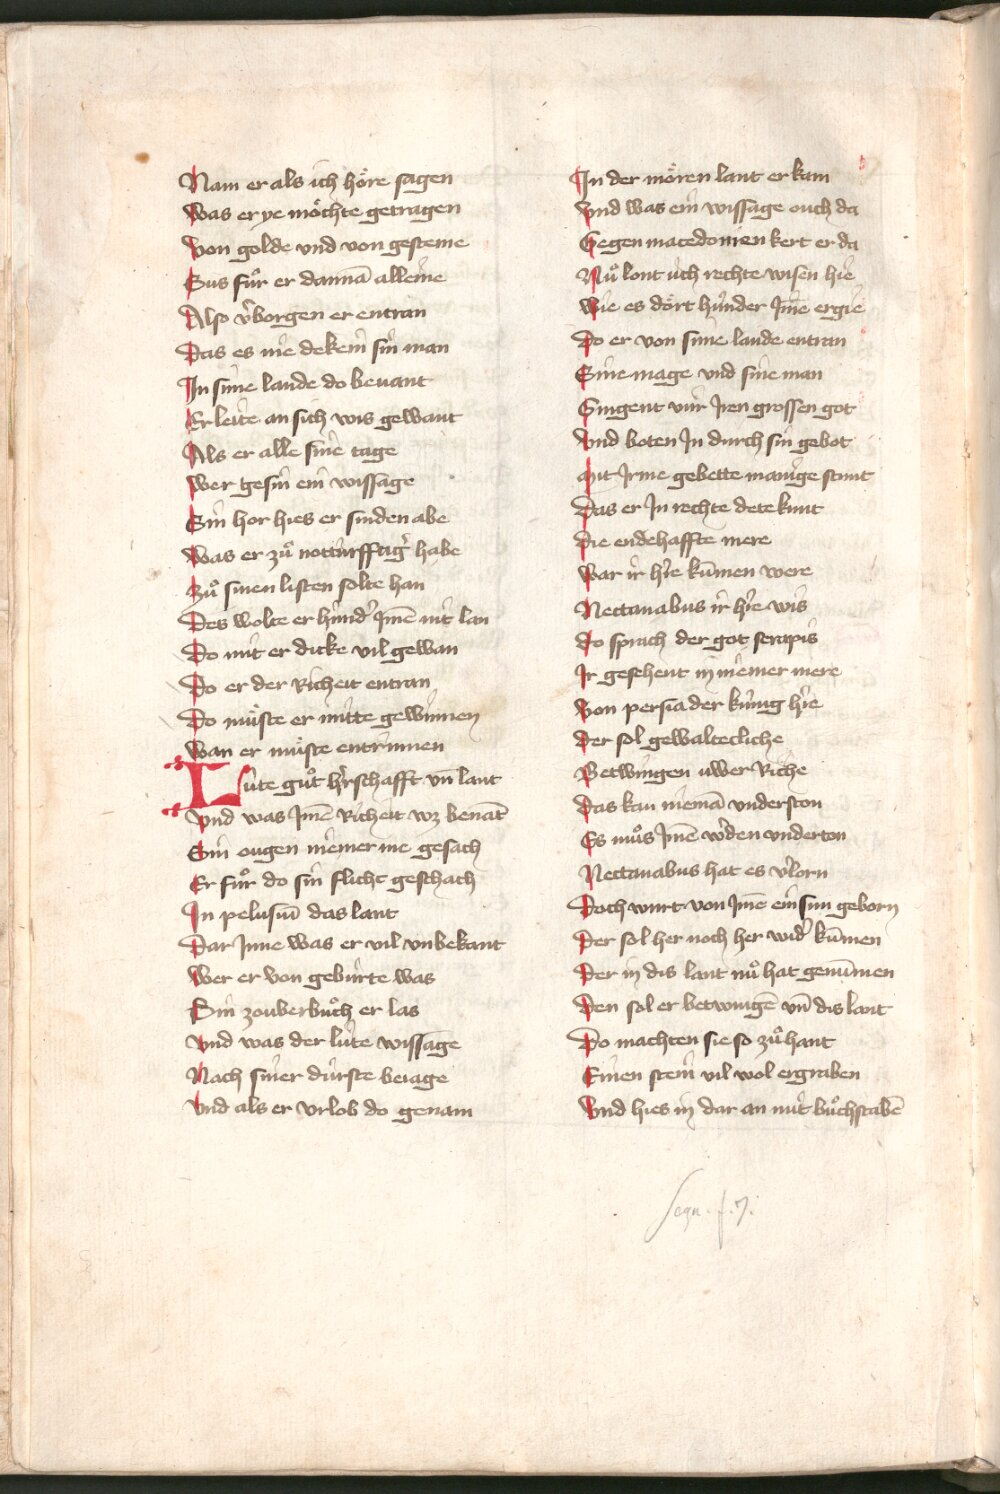 Nam er als ich höre sagen
Was er ye möchte getragen
Von golde vnd von gesteine
Sus fuͦr er dannā alleine
Also v̓borgen er entran
Das es nie dekein sin man
In sime lande do beuant
Er leite an sich wis gewant
Als er alle sine tage
Wer gesin ein wissage
Sin hor hies er sinden abe
Was er zuͦ notturfftig̓ habe
Zuͦ sinen listen solte han
Des wolte er hind̓ Jme nit lan
Do mit er dicke vil gewan
Do er der Richeit entran
Do muͤste er mitte gewinnen
Wan er muͤste entrinnen
Lute guͦt h̓rschafft vn̄ lant
Vnd was Jme Richeit wz benāt
Sin ougen niemer me gesach
Er fuͦr do sin flicht geschach
In pelusiū das lant
Dar Jnne was er vil vnbekant
Wer er von geburte was
Sin zouberbuͦch er las
Vnd was der lúte wissage
Nach siner dúrste beiage
Vnd als er vrlob do genam
In der mören lant er kam
Vnd was ein wissage ouch da
Gegen macedonien kert er da
Nuͦ lont úch rechte wisen hie
Wie es dört hinder Jme ergie
Do er von sime lande entran
Sine mage vnd sine man
Gingent vúr Jren grossen got
Vnd boten Jn durch sin gebot
Mit Jrme gebette manige stunt
Das er Jn rechte dete kunt
Die endehaffte mere
War ir h̓re kūmen were
Nectanabus ir h̓re wis
Do sprach der got serapis
Ir gesehent in niemer mere
Von persia der kúnig h̓re
Der sol gewaltecliche
Betwingen uwer Riche
Das kan niemā vnderston
Es muͦs Jme w̓den vnderton
Nectanabus hat es v̓lorn
Doch wurt von Jme ein sun geborn
Der sol her noch her wid̓ kūmen
Der in dis lant nuͦ hat genūmen
Den sol er betwingē vn̄ dis lant
Do machten sie so zuͦ hant
Einen stein vil wol ergraben
Vnd hies in dar an mit buͦchstabē